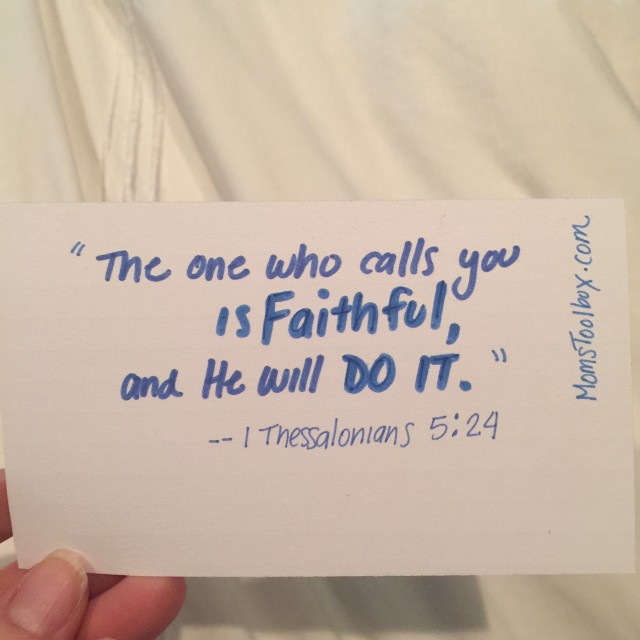 "The one who calls you
is Faithful,
and He will DO IT."
-- 1 Thessalonians 5:24
MomsToolbox.com